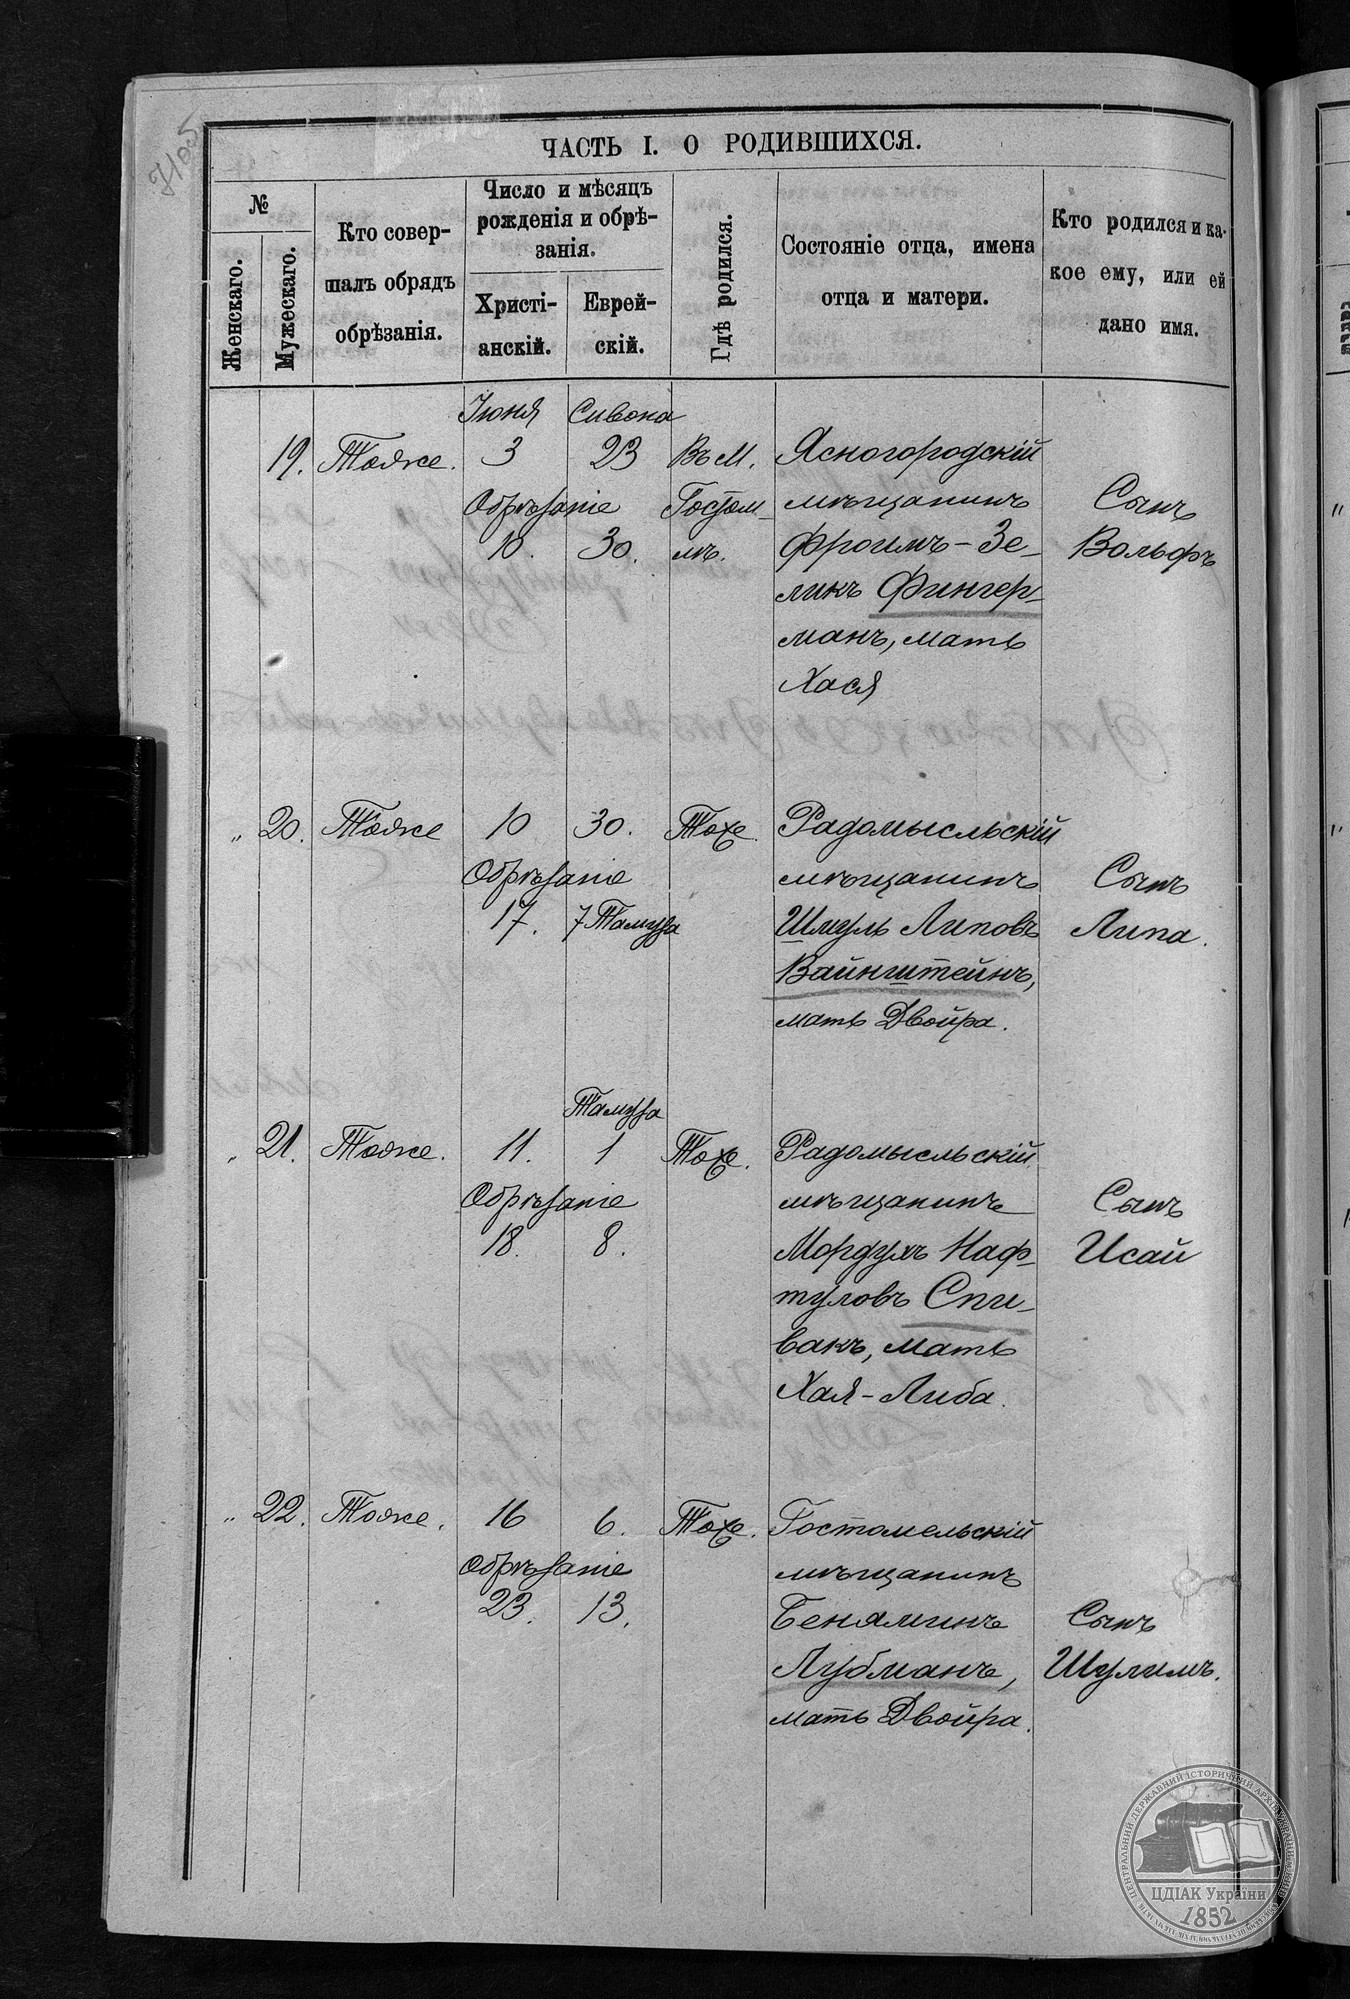 ЧАСТЬ I. О РОДИВШИХСЯ.
№
Женскаго.
Мужескаго.
Кто совер-
шалъ обрядъ
обрѣзанія.
Число и мѣсяцъ
рожденія и обрѣ-
занія.
Христі-
анскій.
Еврей-
скій.
Гдѣ родился.
Состояніе отца, имена
отца и матери.
Кто родился и ка-
кое ему, или ей
дано имя.
Іюня Сивона
19. Тоже. 3 23 Въ М. Ясногородскій
Обрѣзаніе Гостом- мѣщанинъ Сынъ
10. 30. лѣ. Фроимъ-Зе- Вольфъ
ликъ Фингер-
манъ, мать
Хася
" 20. Тоже 10 30. Тоже. Радомысльскій
Обрѣзаніе мѣщанинъ Сынъ
17. 7 Тамуза Шмуль Липовъ Липа.
Вайнштейнъ,
мать Двойра.
Тамуза
" 21. Тоже. 11. 1 Тоже. Радомысльскій
Обрѣзаніе мѣщанинъ Сынъ
18. 8. Мордухъ Наф- Исай
туловъ Спи-
вакъ, мать
Хая-Либа.
" 22. Тоже. 16 6. Тоже. Гостомельскій
Обрѣзаніе мѣщанинъ
23. 13. Беняминъ Сынъ
Лубманъ, Шулимъ.
мать Двойра.
ЦЕНТРАЛЬНИЙ ДЕРЖАВНИЙ ІСТОРИЧНИЙ АРХІВ УКРАЇНИ
ЦДІАК України
1852